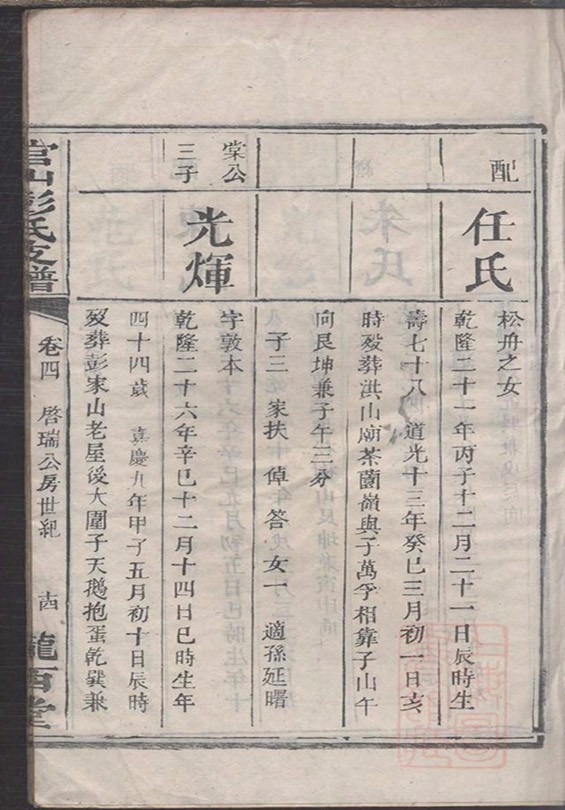 配
任氏
松舟之女
乾隆二十一年丙子十二月二十一日辰時生
壽七十八 道光十三年癸巳三月初一日亥
時歿葬洪山廟茶園嶺與子萬孚相靠子山午
向艮坤兼子午三分
子三 家扶 倬 答 女一 適孫延曙
棠公
三子
光煇
字敦本
乾隆二十六年辛巳十二月十四日巳時生年
四十四歲 嘉慶九年甲子五月初十日辰時
歿葬彭家山老屋後大圍子天鵝抱蛋乾巽兼
官山彭氏支譜
卷四 啓瑞公房世紀 十四
隴西堂